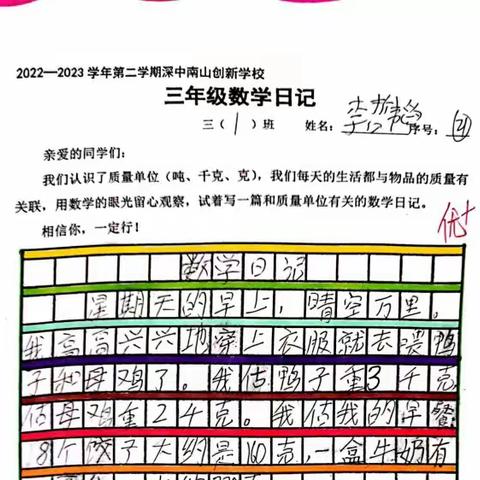 2022—2023学年第二学期深中南山创新学校
三年级数学日记
三（1）班 姓名： 序号：
亲爱的同学们：
我们认识了质量单位（吨、千克、克），我们每天的生活都与物品的质量有
关联，用数学的眼光留心观察，试着写一篇和质量单位有关的数学日记。
相信你，一定行！
优+
数学日记
星期天的早上，晴空万里。
我高高兴兴地穿上衣服就去喂鸭
子和母鸡了。我估鸭子重3千克
估母鸡重2千克。我估我的早餐：
8个饺子大约是160克，一盒牛奶有